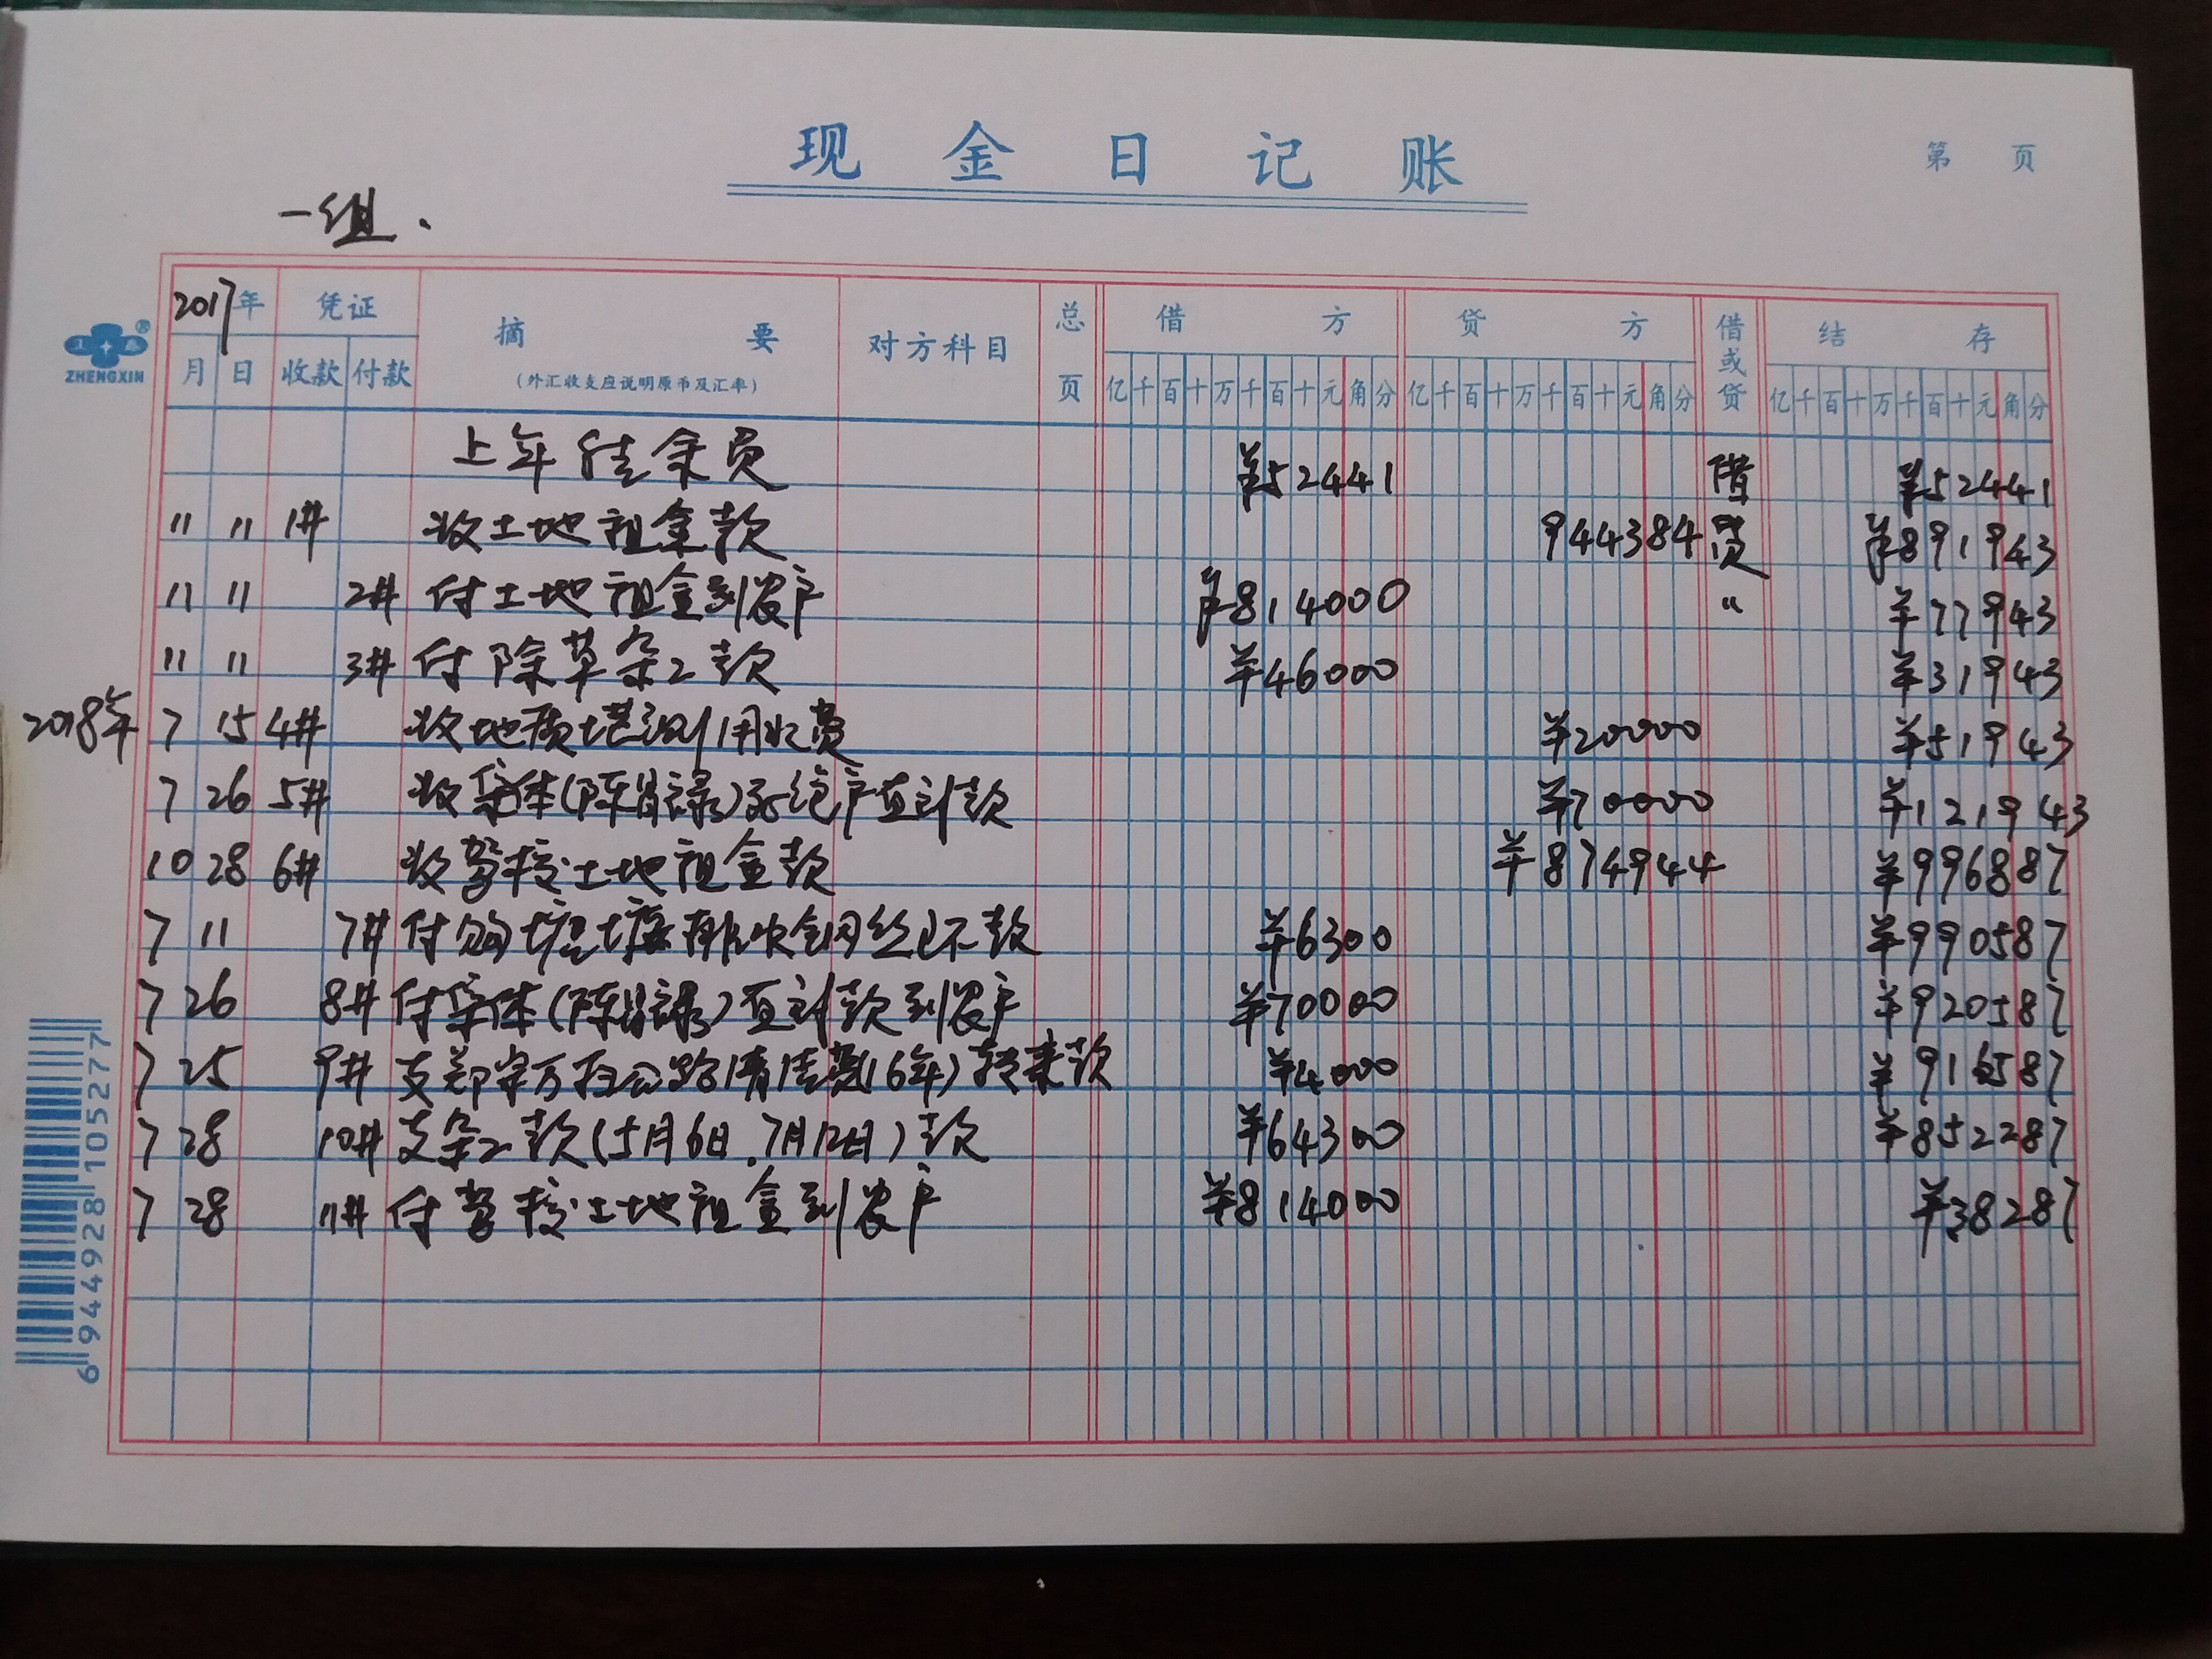 现金日记账
第 页
一组.
2017年 凭证 摘要 对方科目 总页 借方 贷方 借或贷 结存
月 日 收款 付款 (外汇收支应说明原币及汇率) 亿千百十万千百十元角分 亿千百十万千百十元角分 亿千百十万千百十元角分
ZHENGXIN
上年结余 ¥52441 借 ¥52441
〃 〃 1# 收土地租金款 944384 贷 ¥891943
〃 〃 2# 付土地租金到农户 ¥814000 〃 ¥77943
〃 〃 3# 付除草杂工款 ¥46000 ¥31943
2018年 7 15 4# 收地质 用水费 ¥20000 ¥51943
7 26 5# 收集体(陈 禄) 款 ¥70000 ¥121943
10 28 6# 收 土地租金款 ¥874944 ¥996887
7 11 7# 付购 款 ¥6300 ¥990587
7 26 8# 付集体(陈 禄) 款到农户 ¥70000 ¥920587
7 25 9# 支郑 万 公路清洁费(16年) 款 ¥4000 ¥916587
7 28 10# 支杂工款(5月6日.7月12日)款 ¥64300 ¥852287
7 28 11# 付 土地租金到农户 ¥814000 ¥38287
6 944928 105277